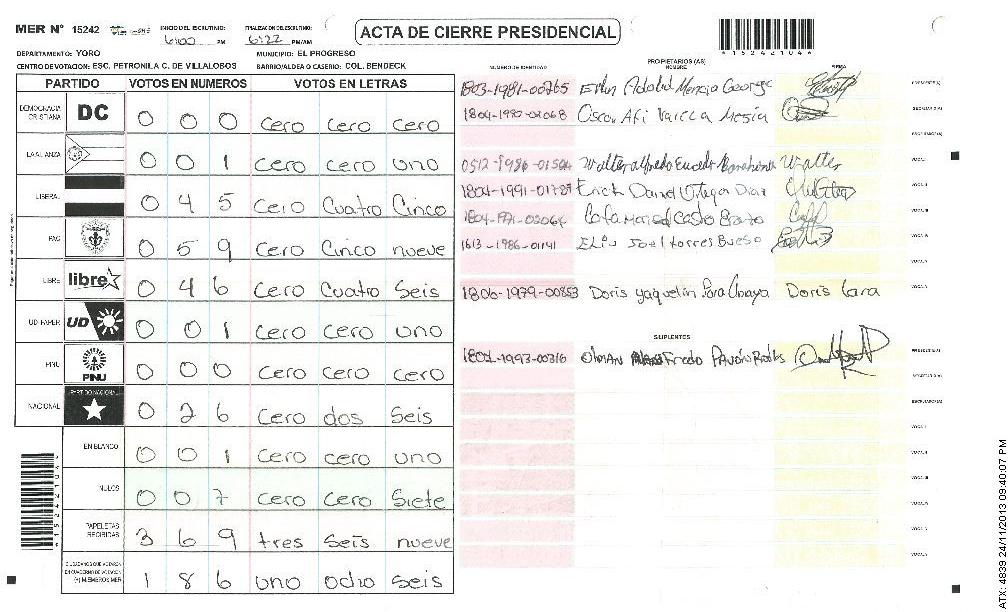 MER Nº 15242 INICIO DEL ESCRUTINIO: 6:00 PM FINALIZACION DEL ESCRUTINIO: 6:22 PM/AM
ACTA DE CIERRE PRESIDENCIAL
*15242104*
DEPARTAMENTO: YORO MUNICIPIO: EL PROGRESO
CENTRO DE VOTACION: ESC. PETRONILA C. DE VILLALOBOS BARRIO/ALDEA O CASERIO: COL. BENDECK
PARTIDO VOTOS EN NUMEROS VOTOS EN LETRAS
DEMOCRACIA CRISTIANA DC 0 0 0 cero cero cero
LA ALIANZA 0 0 1 cero cero uno
LIBERAL 0 4 5 cero cuatro cinco
PAC 0 5 9 cero cinco nueve
LIBRE libre 0 4 6 cero cuatro seis
UD FAPER UD 0 0 1 cero cero uno
PINU PINU 0 0 0 cero cero cero
NACIONAL PARTIDO NACIONAL 0 2 6 cero dos seis
EN BLANCO 0 0 1 cero cero uno
NULOS 0 0 7 cero cero siete
PAPELETAS RECIBIDAS 3 6 9 tres seis nueve
CIUDADANOS QUE VOTARON EN CUADERNO DE VOTACION (+) MIEMBROS MER 1 8 6 uno ocho seis
PROPIETARIOS (AS)
NUMERO DE IDENTIDAD NOMBRE FIRMA
1803-1981-00765 George PRESIDENTE(A)
Oscar SECRETARIO(A)
ESCRUTADOR(A)
Walter Alfredo Walter VOCAL I
1804-1991-01729 Erick Daniel Ortega Diaz
Castro
1613-1986-01141 Elin Joel torres Bueso
1806-1979-00853 Doris yaquelin Lara Doris Lara
SUPLENTES
-1993-00316 PRESIDENTE(A)
SECRETARIO(A)
ESCRUTADOR(A)
ATX: 4839 24/11/2013 09:40:07 PM